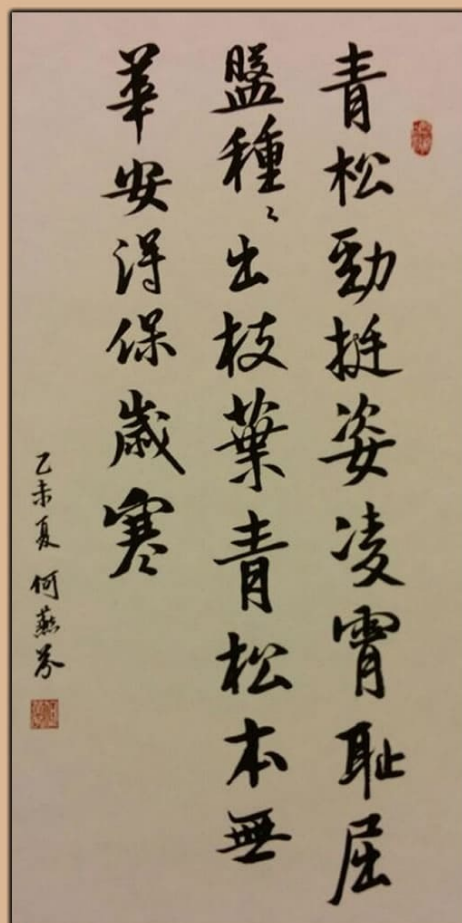 青松勁挺姿凌霄恥屈
盤種〻出枝葉青松本無
華安得保歲寒
乙未夏 何燕芬